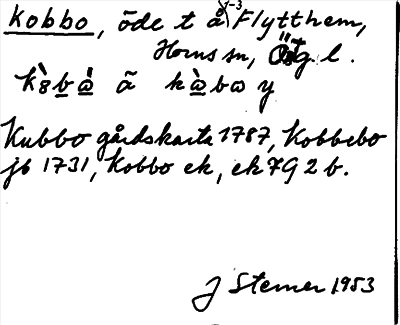 Kobbo, öde t å 1-3 Flytthem,
Horns sn, Östg l.
Kubbo gårdskarta 1787, Kobbebo
jb 1731, Kobbo ek, ek 7G 2 b.
J Sterner 1953